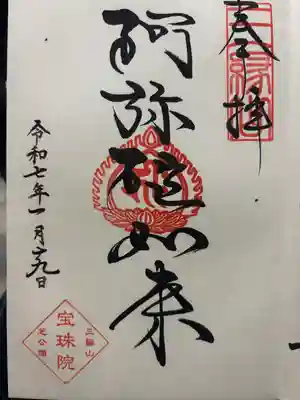 奉拝
阿弥陀如来
令和七年一月十九日
三縁山
宝珠院
芝公園